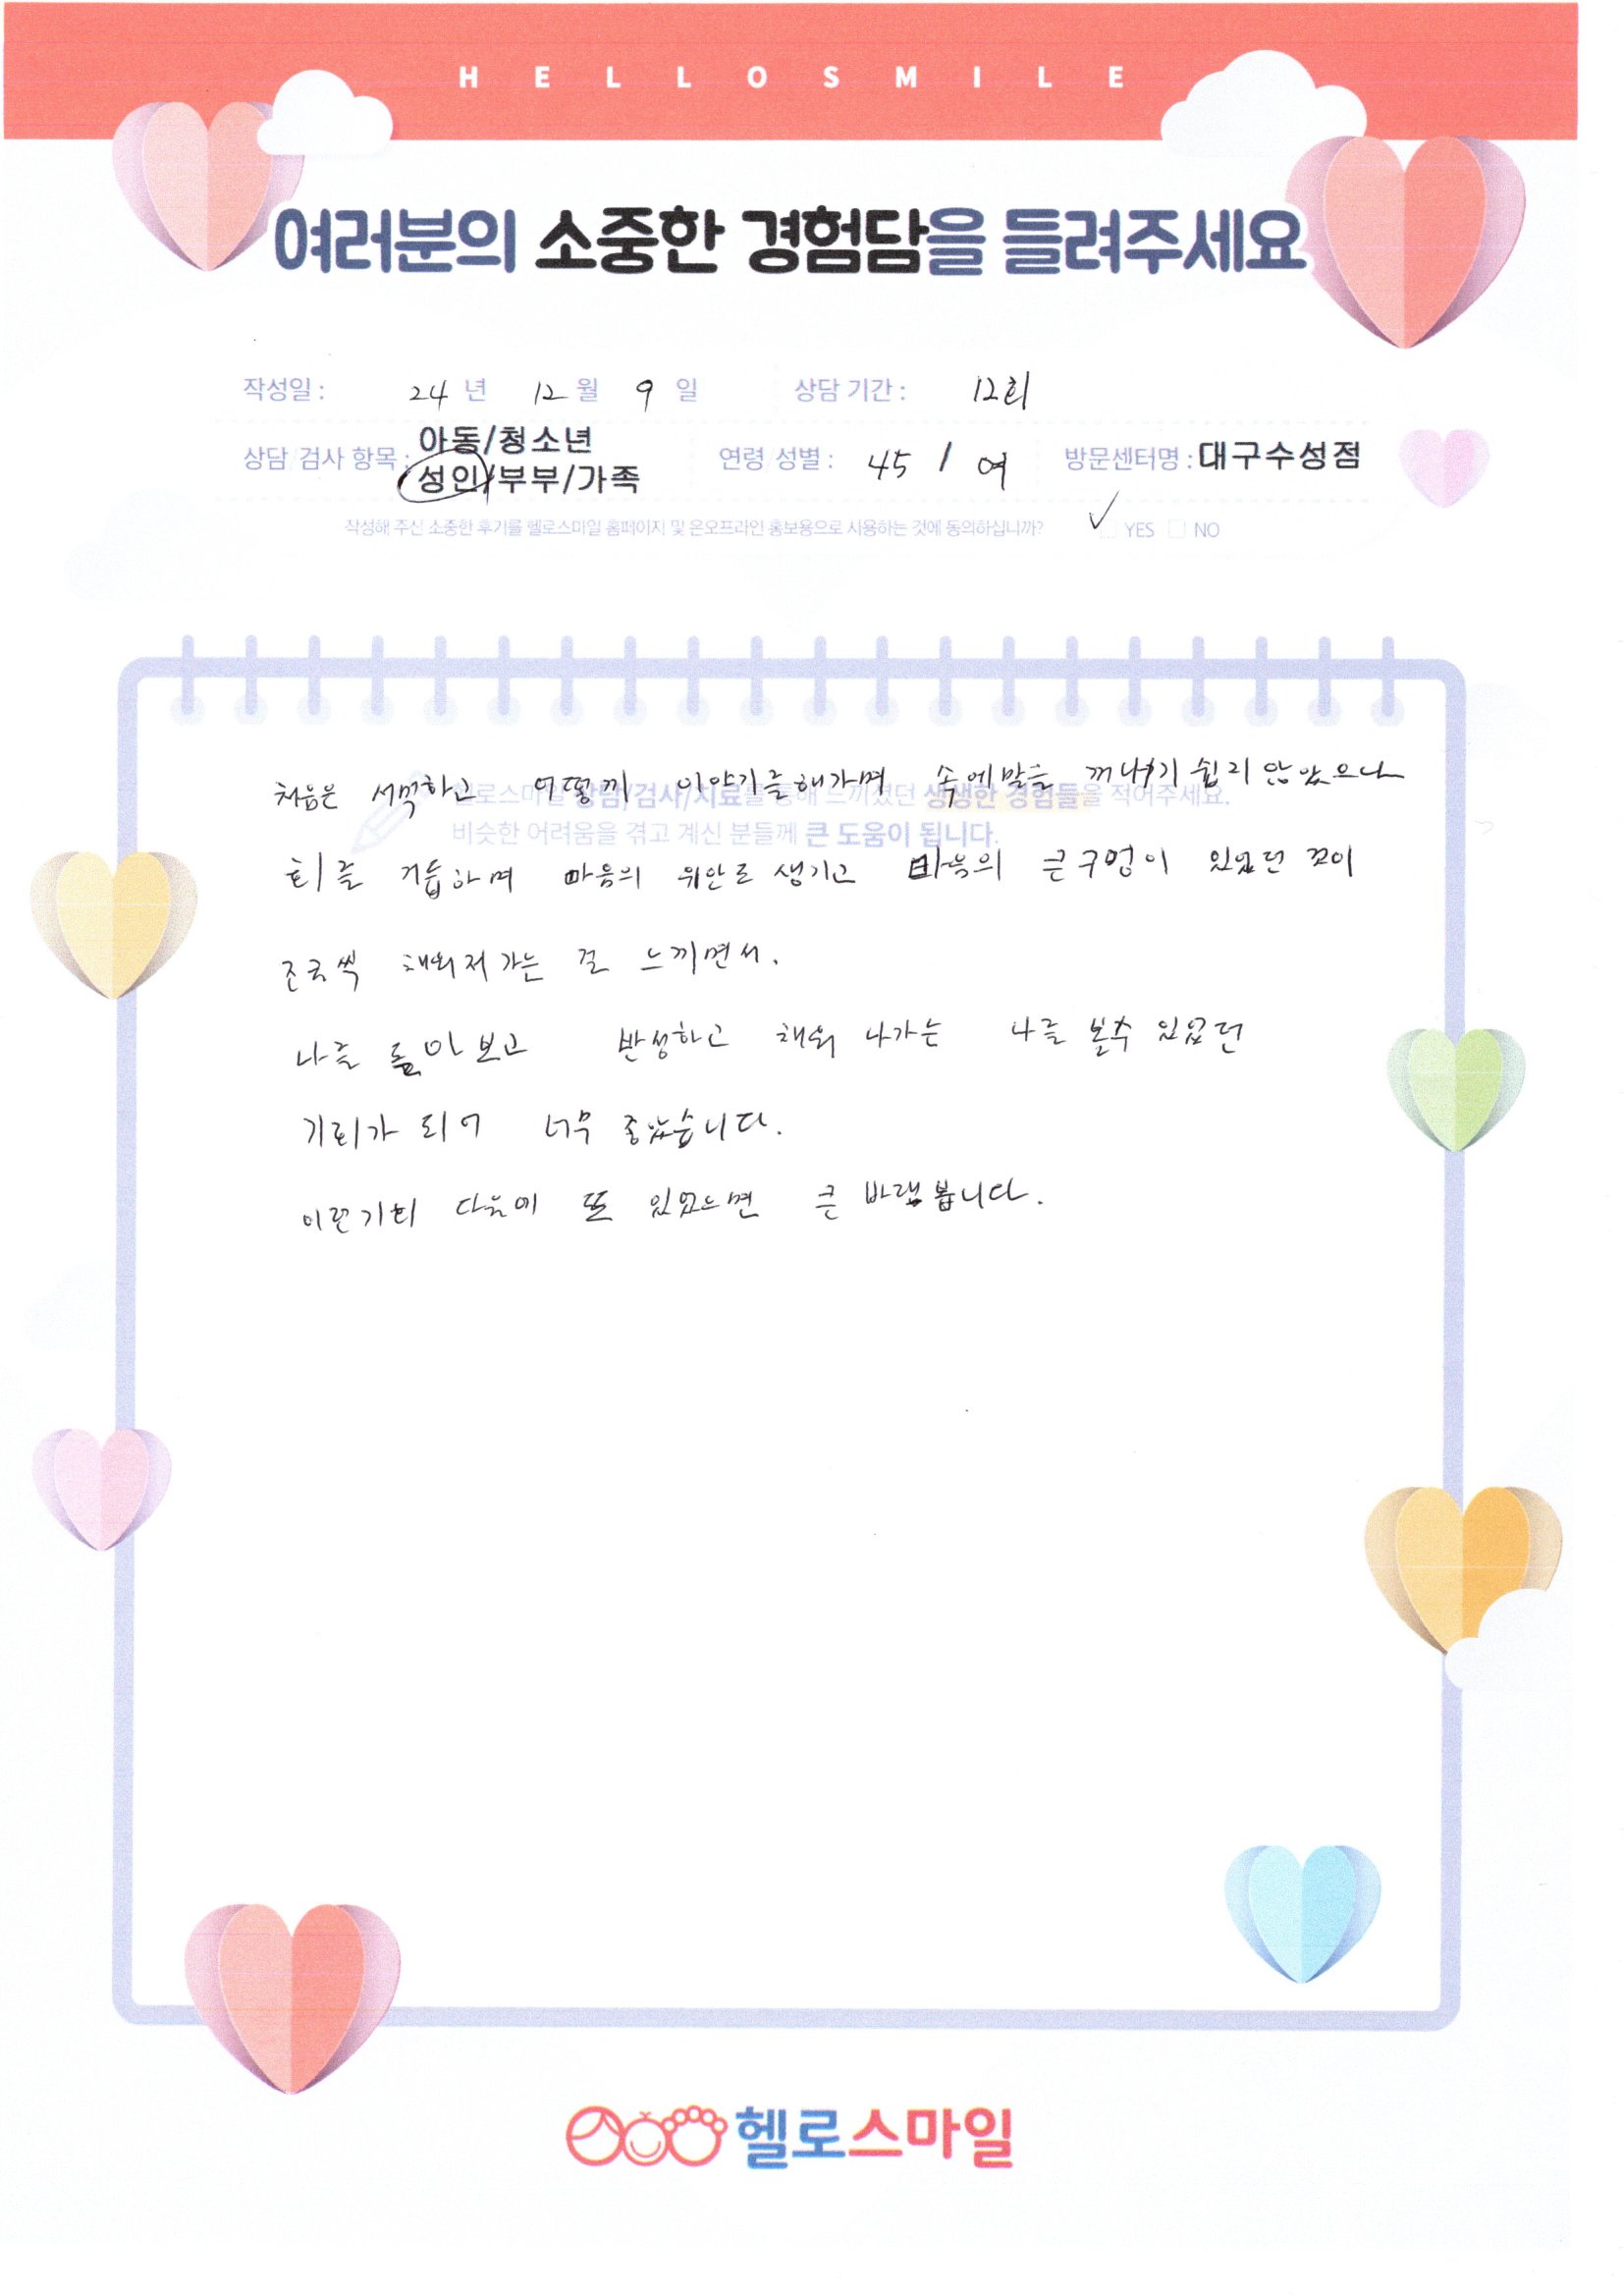 HELLOSMILE
여러분의 소중한 경험담을 들려주세요
작성일 : 24 년 12 월 9 일 상담 기간 : 12회
상담 검사 항목 : 아동/청소년
성인/부부/가족 연령 성별 : 45 / 여 방문센터명 : 대구수성점
작성해 주신 소중한 후기를 헬로스마일 홈페이지 및 온오프라인 홍보용으로 사용하는 것에 동의하십니까? ✓ YES NO
헬로스마일 상담/검사/치료를 통해 느끼셨던 생생한 경험들을 적어주세요.
비슷한 어려움을 겪고 계신 분들께 큰 도움이 됩니다.
처음은 서먹하고 어떻게 이야기를해가며 속에말을 꺼내기 쉽지 않았으나
회를 거듭하며 마음의 위안도 생기고 마음의 큰구멍이 있었던 것이
조금씩 채워져 가는 걸 느끼면서.
나를 돌아보고 반성하고 채워 나가는 나를 볼수 있었던
기회가 되어 너무 좋았습니다.
이런기회 다음에 또 있었으면 큰 바램 봅니다.
헬로스마일